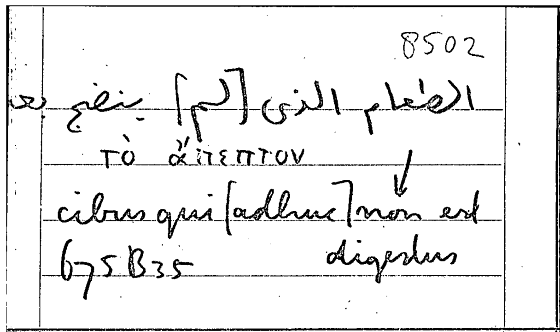 8502
الطعام الذى [لم] ينضج بعد
τὸ ἄπεπτον
cibus qui [adhuc] non est
digestus
675B35